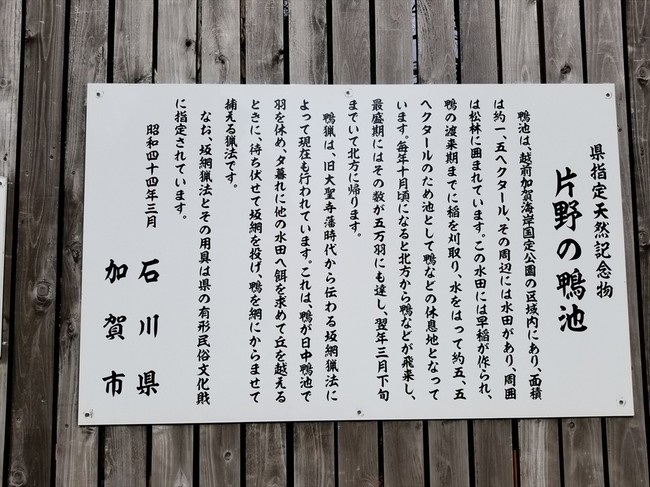 県指定天然記念物
片野の鴨池
鴨池は、越前加賀海岸国定公園の区域内にあり、面積
は約一、五ヘクタール、その周辺には水田があり、周囲
は松林に囲まれています。この水田には早稲が作られ、
鴨の渡来期までに稲を刈取り、水をはって約五、五
ヘクタールのため池として鴨などの休息地となって
います。毎年十月頃になると北方から鴨などが飛来し、
最盛期にはその数が五万羽にも達し、翌年三月下旬
までいて北方に帰ります。
鴨猟は、旧大聖寺藩時代から伝わる坂網猟法に
よって現在も行われています。これは、鴨が日中鴨池で
羽を休め、夕暮れに他の水田へ餌を求めて丘を越える
ときに、待ち伏せて坂網を投げ、鴨を網にからませて
捕える猟法です。
なお、坂網猟法とその用具は県の有形民俗文化財
に指定されています。
昭和四十四年三月
石川県
加賀市